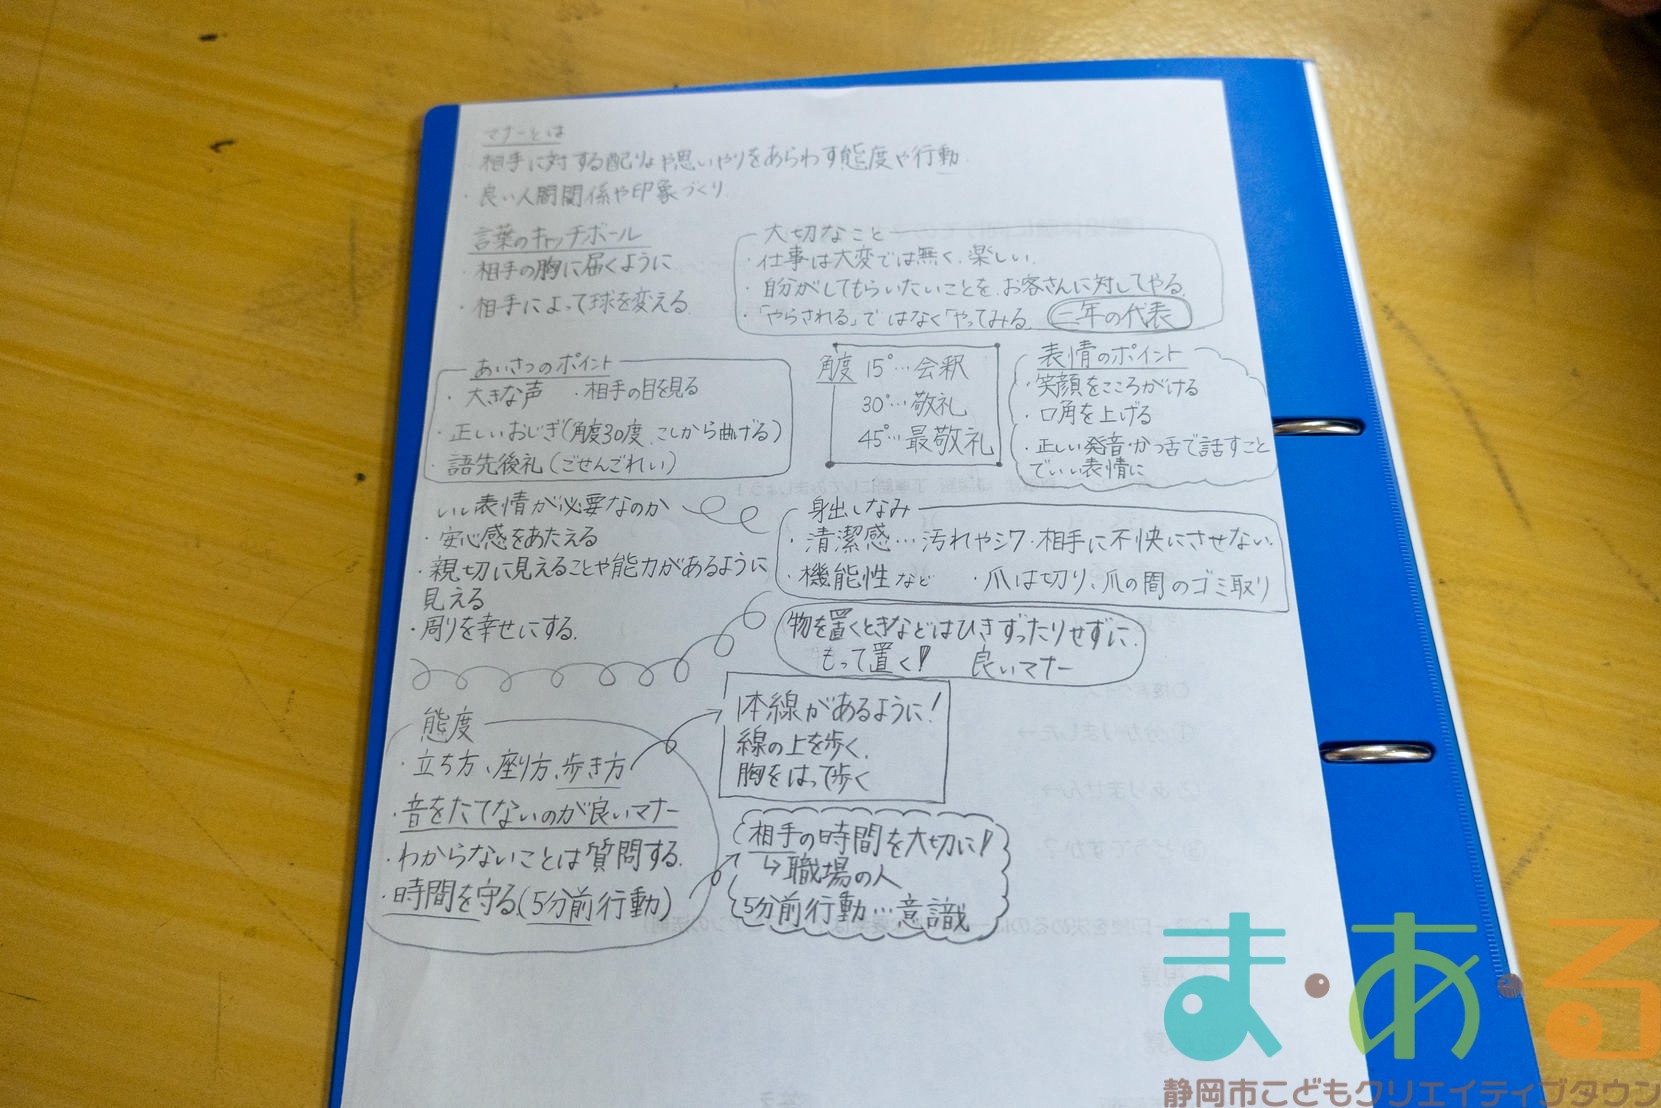 マナーとは
・相手に対する配りょや思いやりをあらわす態度や行動
・良い人間関係や印象づくり
言葉のキャッチボール
・相手の胸に届くように
・相手によって球を変える
大切なこと
・仕事は大変では無く、楽しい。
・自分がしてもらいたいことを、お客さんに対してやる。
・「やらされる」ではなく「やってみる。
二年の代表
あいさつのポイント
・大きな声 ・相手の目を見る
・正しいおじぎ(角度30度、こしから曲げる)
・語先後礼(ごせんごれい)
角度 15°…会釈
30°…敬礼
45°…最敬礼
表情のポイント
・笑顔をこころがける
・口角を上げる
・正しい発音・かつ舌で話すこと
でいい表情に
いい表情が必要なのか
・安心感をあたえる
・親切に見えることや能力があるように
見える
・周りを幸せにする。
身出しなみ
・清潔感…汚れやシワ・相手に不快にさせない。
・機能性など ・爪は切り、爪の間のゴミ取り
物を置くときなどはひきずったりせずに、
もって置く! 良いマナー
態度
・立ち方、座り方、歩き方
・音をたてないのが良いマナー
・わからないことは質問する。
・時間を守る(5分前行動)
1本線があるように!
線の上を歩く。
胸をはって歩く
相手の時間を大切に!
↳職場の人
5分前行動…意識
ま・ある
静岡市こどもクリエイティブタウン